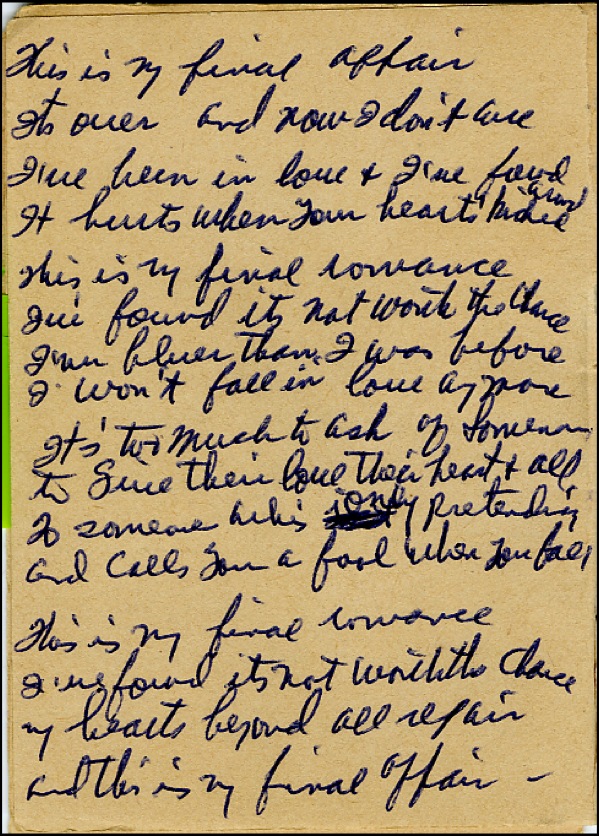 This is my final affair
Its over and now I don't care
I've been in love & I've found
It hurts when your hearts
This is my final romance
I've found its not worth the chance
I'm bluer than I was before
I won't fall in love aymore
It's too much to ask of someone
to Give their love their heart & all
To someone who's only pretending
and calls you a fool when you fall
This is my final romance
I've found its not worth the chance
my hearts beyond all repair
and this is my final affair –